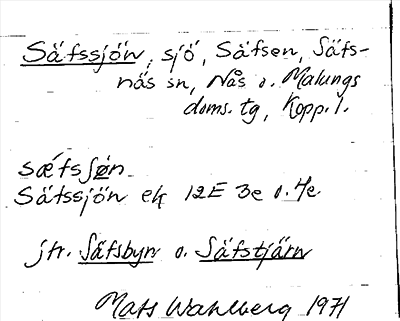 Säfssjön, sjö, Säfsen, Säfs-
näs sn, Nås o. Malungs
doms. tg, Kopp. l.
Säfssjön ek 12E 3e o. 4e.
jfr. Säfsbyn o. Säfstjärn
Mats Wahlberg 1971